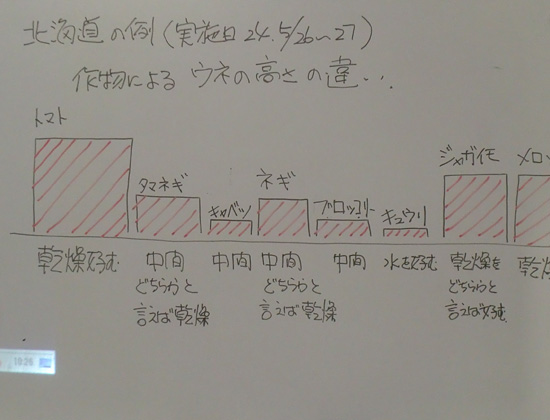 北海道の例(実施日24.5/26〜27)
作物による ウネの高さの違...
トマト
タマネギ
キャベツ
ネギ
ブロッコリー
キュウリ
ジャガイモ
メロ
乾燥好む
中間
どちらかと
言えば乾燥
中間
中間
どちらかと
言えば乾燥
中間
水を好む
乾燥を
どちらかと
言えば好む
乾
10:28